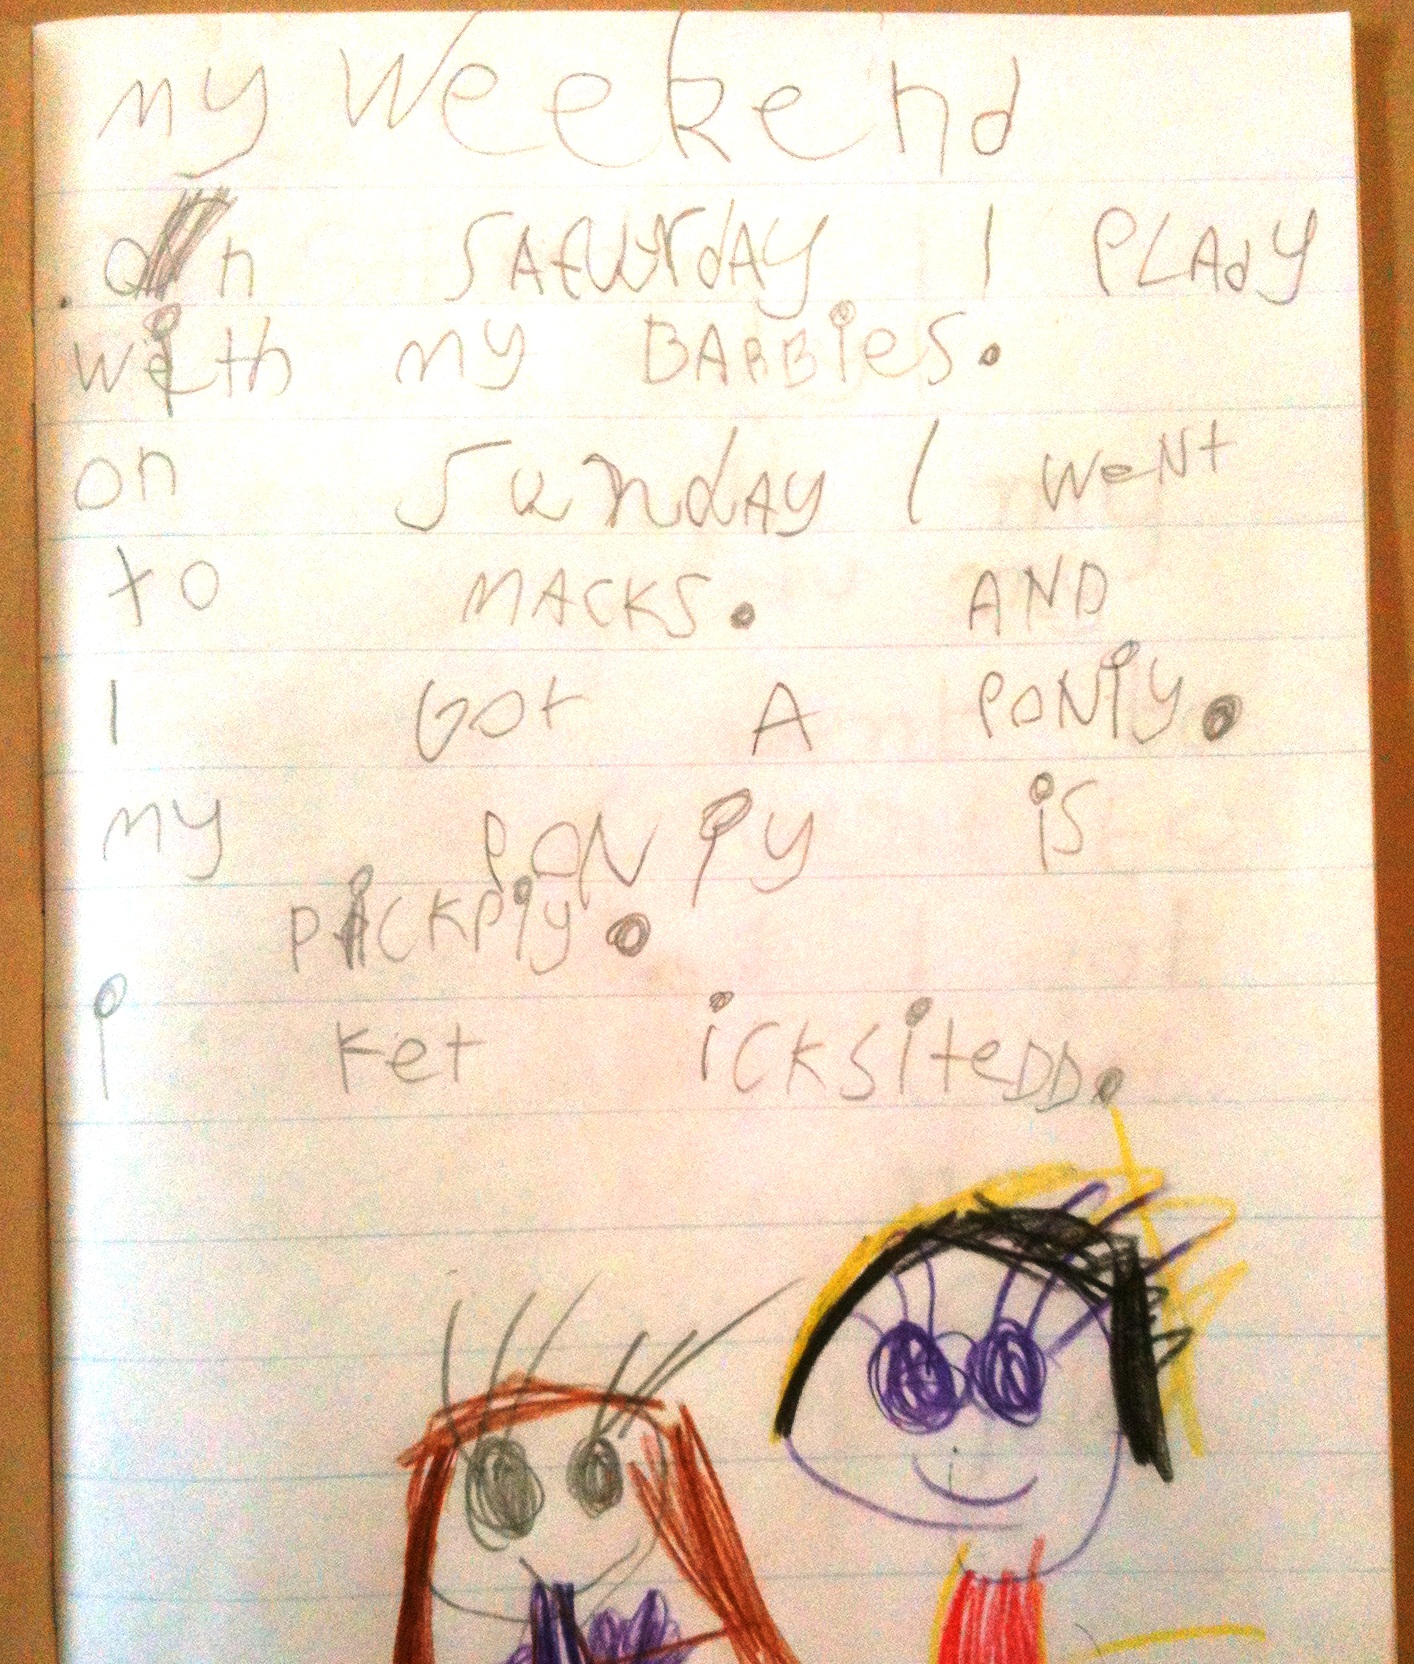 my Weekend
on SAturdAY I PLAdY
with my BARBies.
on SundAY I weNt
to MACKS. AND
I GOt A PONiY.
my PONiY is
PickPiy.
i ket icksiteDD.